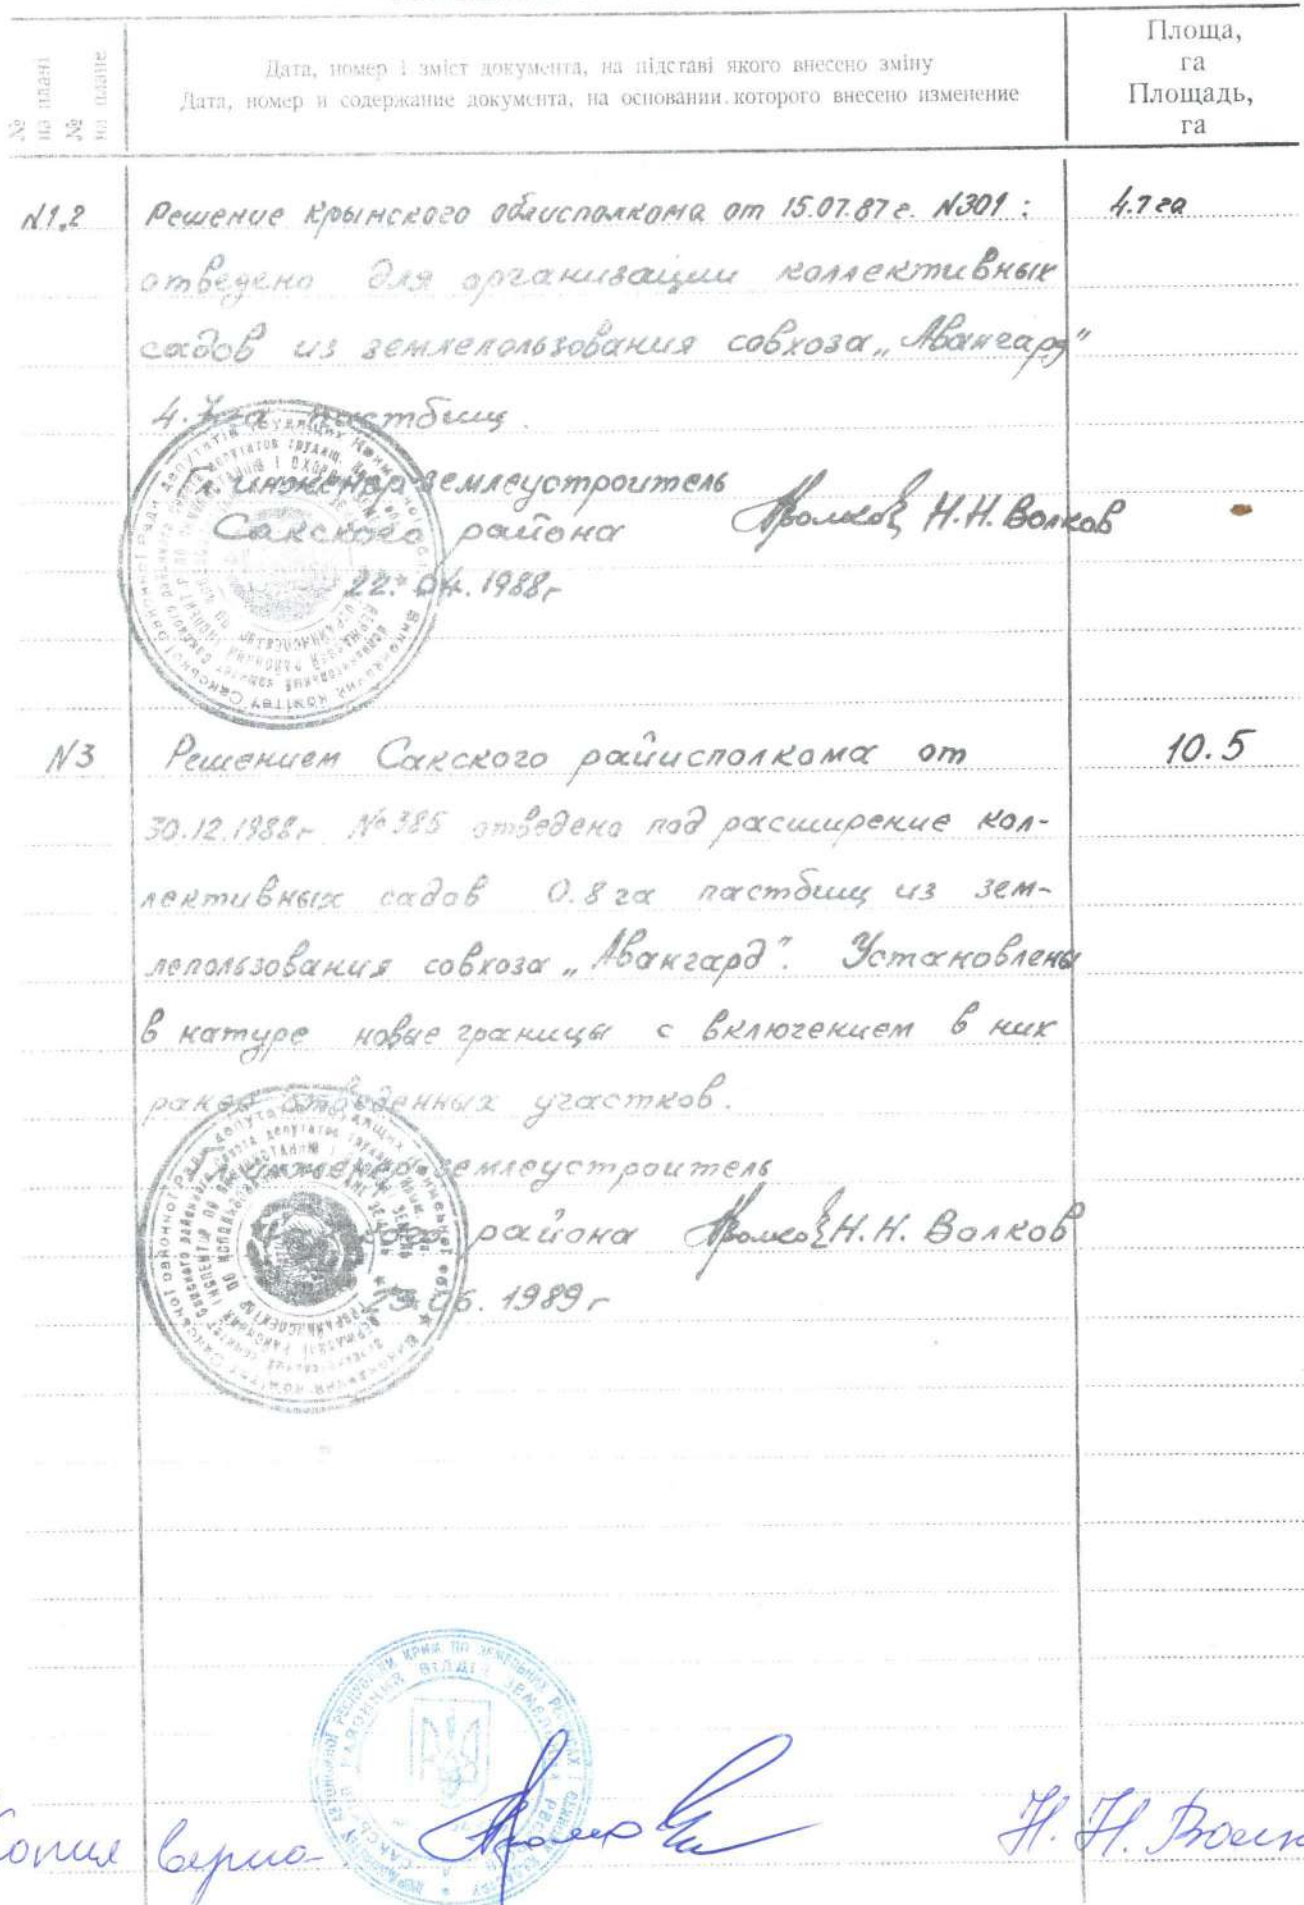 № на плані
№ на плане
Дата, номер і зміст документа, на підставі якого внесено зміну
Дата, номер и содержание документа, на основании которого внесено изменение
Площа,
га
Площадь,
га
N1,2 Решение Крымского облисполкома от 15.07.87г. N301: 4.7га
отведено для организации коллективных
садов из землепользования совхоза „Авангард"
4.7га пастбищ.
Гл. инженер-землеустроитель
Сакского района Н.Н. Волков
22.04.1988г
N3 Решением Сакского райисполкома от 10.5
30.12.1988г №385 отведено под расширение кол-
лективных садов 0.8га пастбищ из зем-
лепользования совхоза „Авангард". Установлены
в натуре новые границы с включением в них
ранее отведенных участков.
Гл. инженер-землеустроитель
района Н.Н. Волков
06.1989г
Копия верна
Н.Н.